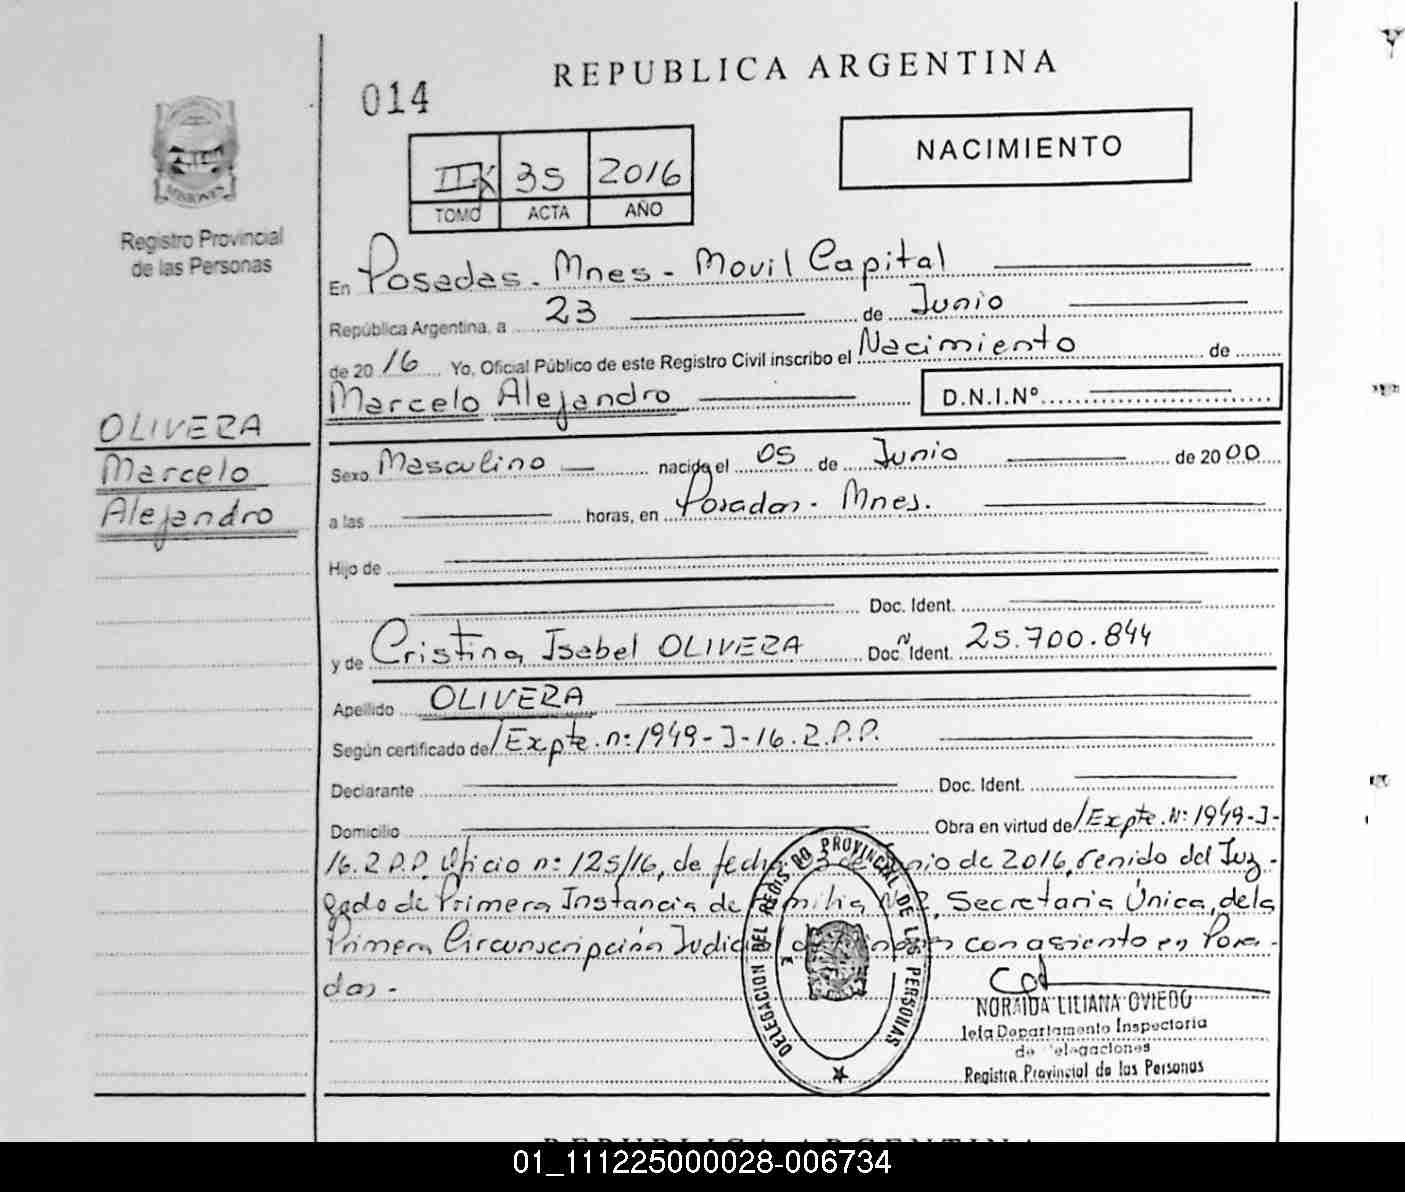 REPUBLICA ARGENTINA
014
NACIMIENTO
35 2016
TOMO ACTA AÑO
MISIONES
Registro Provincial
de las Personas
En Posadas - Mnes - Movil Capital
República Argentina, a 23 de Junio
de 2016 Yo, Oficial Público de este Registro Civil inscribo el Nacimiento de
Marcelo Alejandro D.N.I.Nº
OLIVERA
Marcelo
Alejandro
Sexo Masculino nacido el 05 de Junio de 2000
a las horas, en Posadas - Mnes.
Hijo de
Doc. Ident.
y de Cristina Isabel OLIVERA Doc. Ident. 25.700.844
Apellido OLIVERA
Según certificado de/Expte. n: 1949-J-16.2.P.P.
Declarante Doc. Ident.
Domicilio Obra en virtud de/Expte. N: 1949-J-
16.2.P.P. Oficio n: 125/16, de fecha de Junio de 2016, renido del Juz-
gado de Primera Instancia de Familia Nº2, Secretaria Única, dela
Primera Circunscripción Judicial con asiento en Posa-
das -
DELEGACION DEL REGISTRO PROVINCIAL DE LAS PERSONAS
NORAIDA LILIANA OVIEDO
Jefa Departamento Inspectoria
de Delegaciones
Registro Provincial de las Personas
REPUBLICA ARGENTINA
01_111225000028-006734